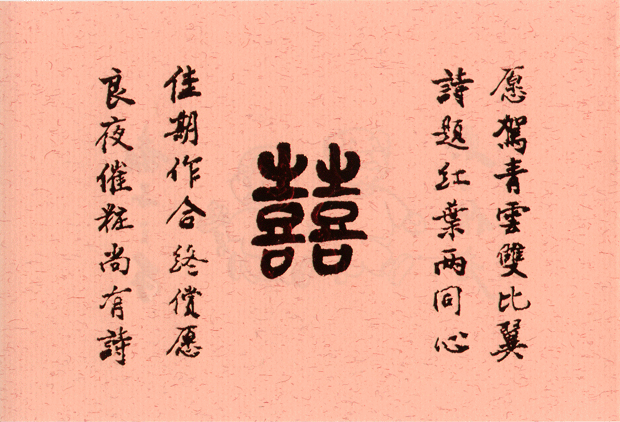 愿駕青雲雙比翼
詩題紅葉兩同心
囍
佳期作合終償愿
良夜催粧尚有詩